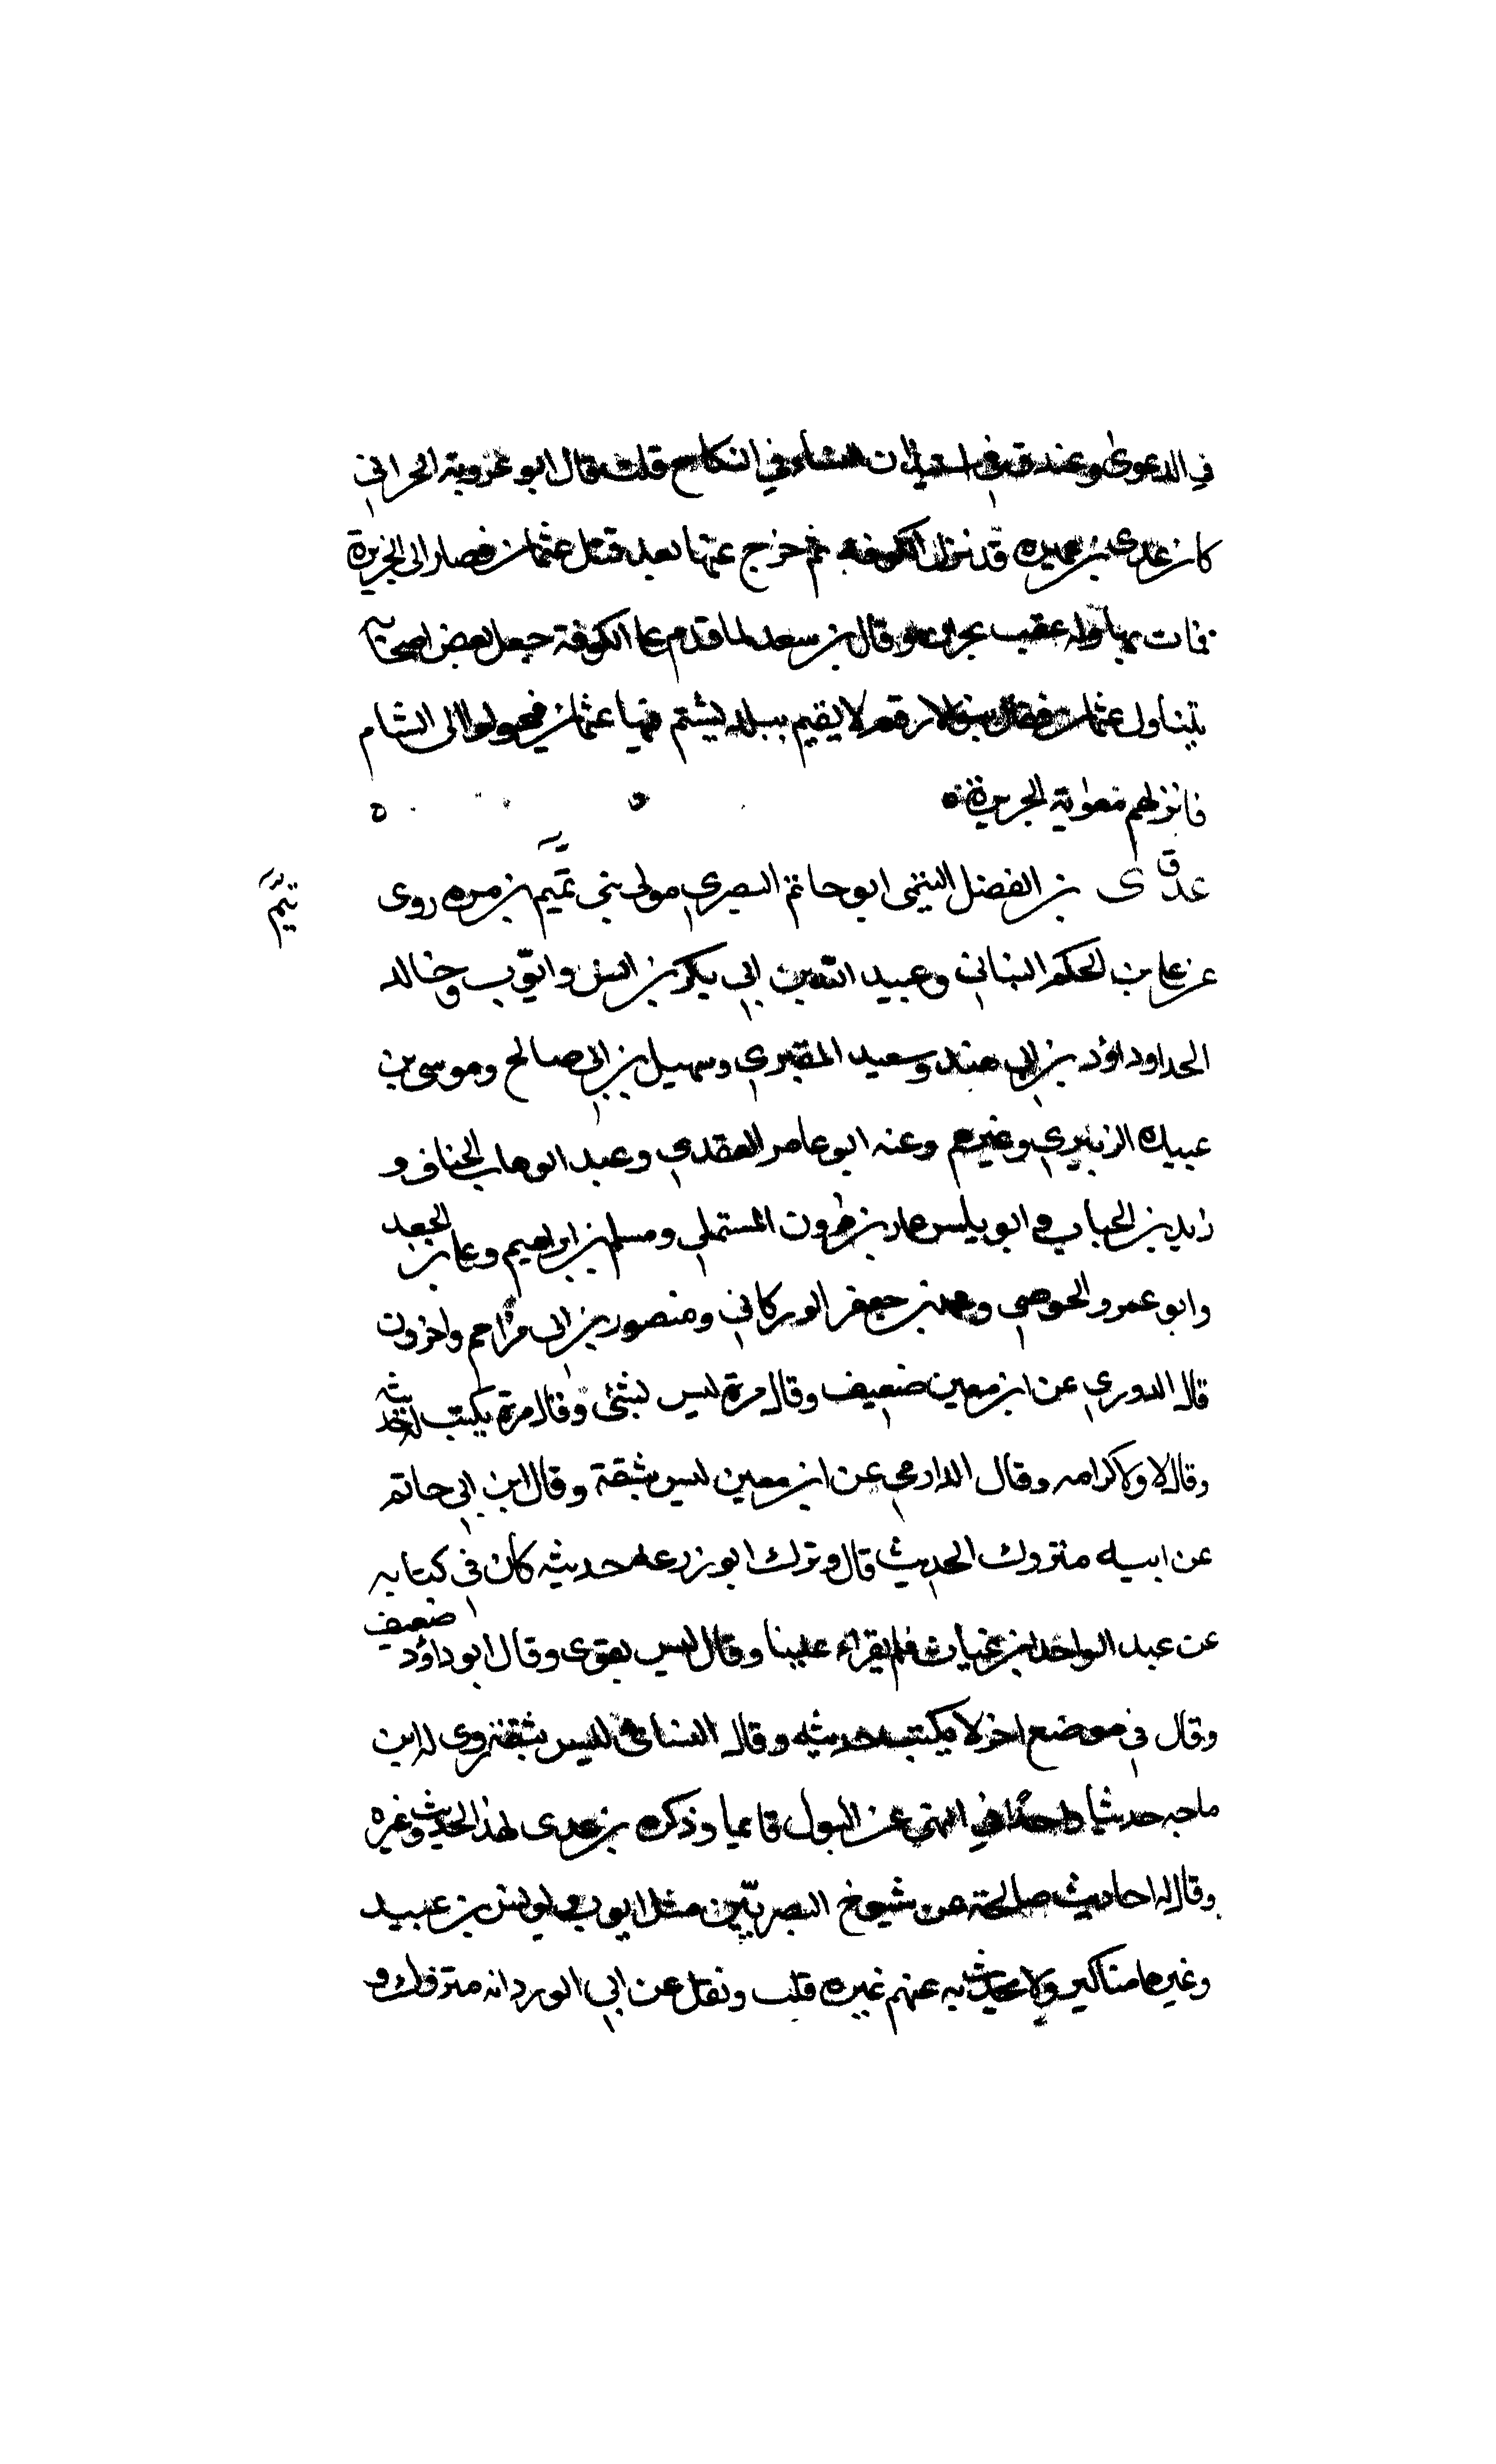 في الدعوى وعند ق في استيذان النساء في النكاح قلت قال ابو عروبة الحراني
كان عدي بن عميرة قد نزل الكوفه ثم خرج عنها بعد قتل عثمان فصار الى الجزيرة
فمات بها وله عقب بحران وقال بن سعد لما قدم علي الكوفة جعل بعض اصحابه
يتناول عثمان فقال بنو الارقم لا يقيم ببلد يشتم فيها عثمان فتحولوا الى الشام
فانزلهم معوية الجزيرة ٥ ٥ ٥
ق
عدى بن الفضل التيمى ابو حاتم البصري مولى بني تميم بن مره روى
تيم
عن علي بن الحكم البناني وعبيد الله بن ابي بكر بن انس وايّوب وخالد
الحذا وداؤد بن ابي هند وسعيد المقبري وسهيل بن ابي صالح وموسى بن
عبيدة الزبيري وغيرهم وعنه ابو عامر العقدي وعبد الوهاب الخفاف و
زيد بن الحباب وابو يلس هارون المستملي ومسلم بن ابراهيم وعلي بن الجعد
وابو عمرو الحوضي ومحمد بن جعفر الوركاني ومنصور بن ابي مزاحم واخرون
قال الدوري عن ابن معين ضعيف وقال مرة ليس بشئ وقال مرة يكتب حديثه
وقال لا ولا كرامه وقال الدارمي عن ابن معين ليس بثقة وقال ابن ابي حاتم
عن ابيه متروك الحديث قال وترك ابو زرعه حديثه كان في كتابه
عن عبد الواحد بن غياث فلم يقراه علينا وقال ليس بقوى وقال ابو داؤد ضعيف
وقال في موضع اخر لا يكتب حديثه وقال النسائي ليس بثقة روى له ابن
ماجه حديثا واحدًا في النهي عن البول قائما وذكر بن عدى هذا الحديث وغيره
وقال له احاديث صالحة عن شيوخ البصريّين مثل ايوب ويونس بن عبيد
وغيرهما مناكير ولا يحدث به عنهم غيره قلت ونقل عن ابي الورد انه متروك و